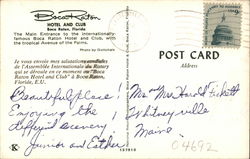 Boca Raton
HOTEL AND CLUB
Boca Raton, Florida
The Main Entrance to the internationally-
famous Boca Raton Hotel and Club, with
the tropical Avenue of the Palms.
Je vous envoie mes salutations
de l'Assemblée Internationale du Rotary
qui se déroule en ce moment au "Boca
Raton Hotel and Club" à Boca Raton,
Florida, E.U.
POST CARD
Address
Beautiful place!
Enjoying the
different scenery,
Junior and
Mr + Mrs Harold
Whitneyville
Maine
04692